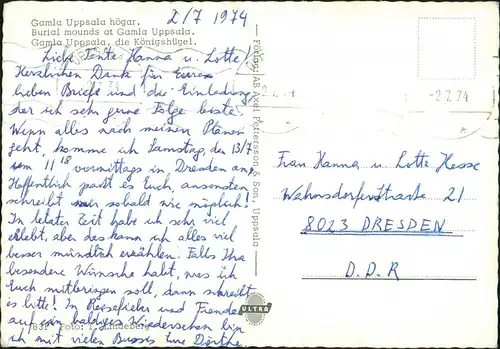 2/7 1974
Gamla Uppsala högar.
Burial mounds at Gamla Uppsala.
Gamla Uppsala, die Königshügel.
Liebe Tante Hanna u. Lotte!
Herzlichen Dank für Euren
lieben Briefe und die Einladung
der ich sehr gerne Folge leiste.
Wenn alles nach meinen Plänen
geht, komme ich Samstag, den 13/7
um 11 18 vormittags in Dresden an,
Hoffentlich paßt es Euch, ansonsten
schreibt sobald wie möglich!
In letzter Zeit habe ich sehr viel
erlebt, aber das kann ich alles viel
besser mündlich erzählen. Falls Ihr
besondere Wünsche habt, was ich
Euch mitbringen soll, dann schreibt
es bitte! In Reisefieber und Freude
auf ein baldiges Wiedersehen bin
ich mit vielen Bussis Eure Dörthe
Foto: T. Lindeberg
Förlag: AB Axel Pettersson & Son, Uppsala
ULTRA
-2.7.74
Frau Hanna u. Lotte Hesse
Wahnsdorferstraße 21
8023 DRESDEN
D.D.R